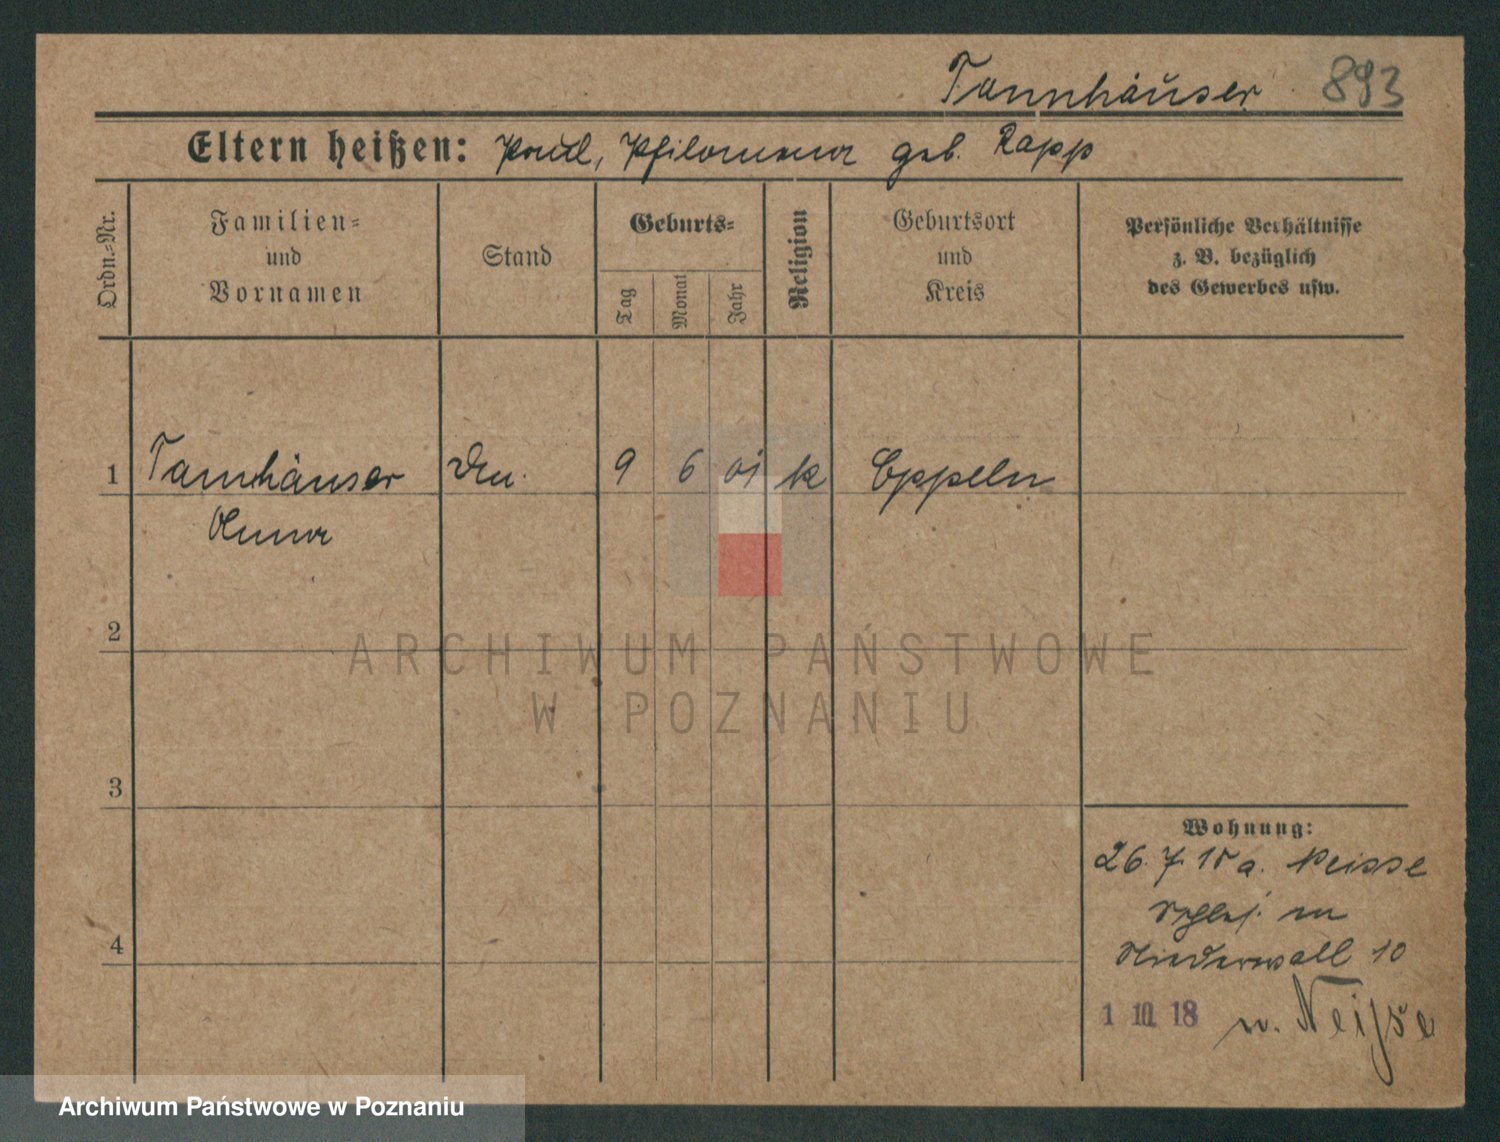 Tannhäuser 893
Eltern heißen: Paul, Philomena geb. Rapp
Ordn.=Nr.
Familien=
und
Vornamen
Stand
Geburts=
Tag
Monat
Jahr
Religion
Geburtsort
und
Kreis
Persönliche Verhältnisse
z. B. bezüglich
des Gewerbes usw.
1 Tannhäuser 9 6 01 k Oppeln
Anna
2
3
4
Wohnung:
26.7.18 a. Neisse
Schles. in
Niederwall 10
1 10 18 n. Neisse
ARCHIWUM PAŃSTWOWE
W POZNANIU
Archiwum Państwowe w Poznaniu